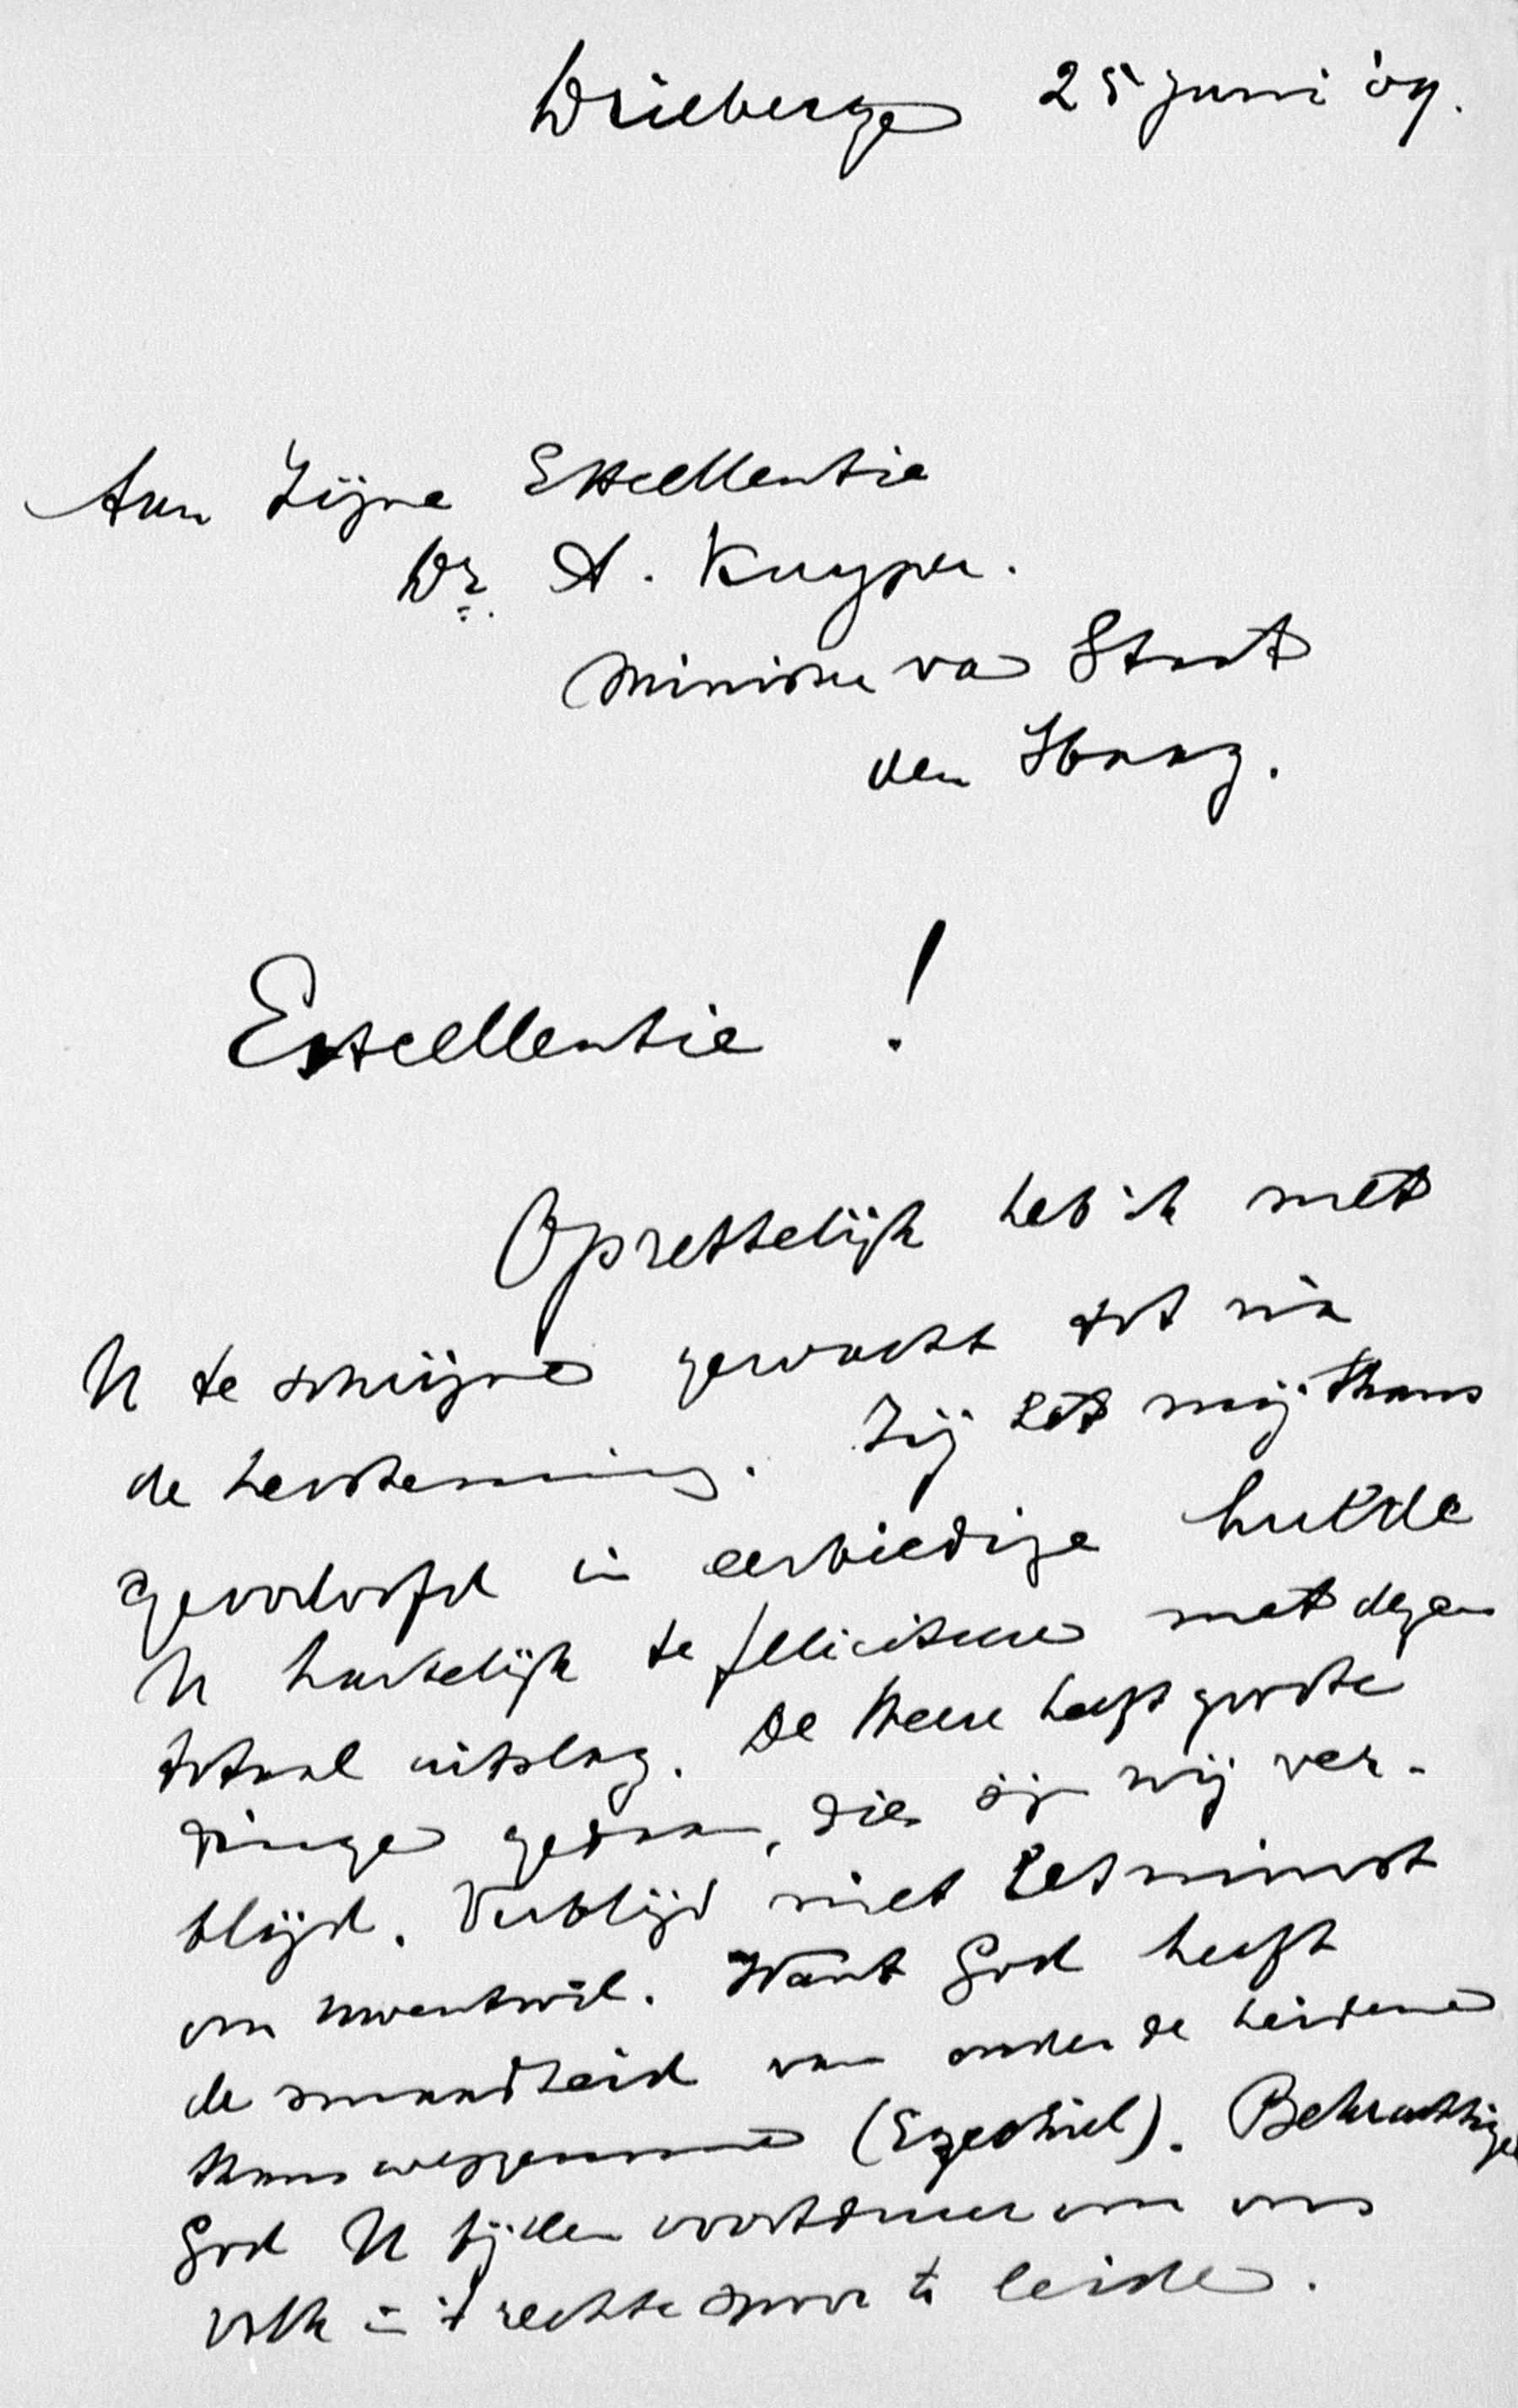 Driebergen 25 Juni '09.
Aan Zijne Excellentie
Dr. A. Kuyper.
Minister van Staat
den Haag.
Excellentie !
Opzettelijk heb ik met
U te schrijven gewacht tot na
de herstemming. Zij het mij thans
geoorloofd in eerbiedige hulde
U hartelijk te feliciteeren met dezen
totaal uitslag. De Heere heeft groote
dingen gedaan, dies zijn wij ver-
blijd. Verblijd niet het minst
om Uwentwil. Want God heeft
de smaadheid van onder de heidenen
thans weggenomen (Ezechiel). Bekrachtige
God U bij den voortduur om ons
volk in 't rechte spoor te leiden.